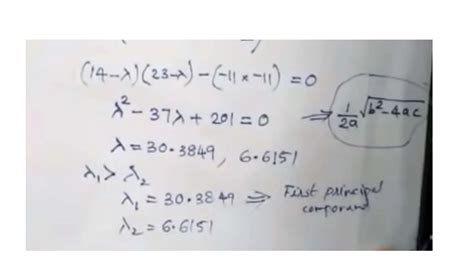 (14-λ)(23-λ)-(-11×-11)=0
λ²-37λ+201=0 ⇒ 1/2a √b²-4ac
λ=30.3849, 6.6151
λ₁>λ₂
λ₁=30.3849 ⇒ First principal
componant
λ₂=6.6151